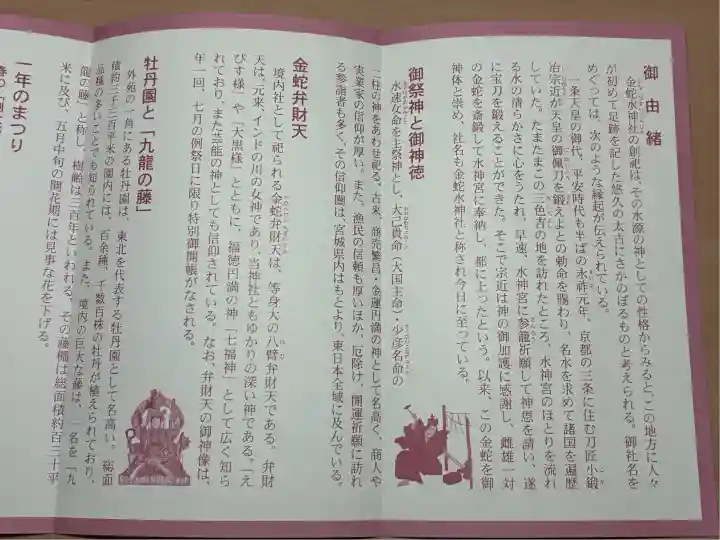 御由緒
金蛇水神社の創祀は、その水源の神としての性格からみるとこの地方に人々
が初めて足跡を記した悠久の太古にさかのぼるものと考えられる。御社名を
めぐっては、次のような縁起が伝えられている。
一条天皇の御代、平安時代も半ばの永祚元年、京都の三条に住む刀匠小鍛
治宗近が天皇の御佩刀を鍛えよとの勅命を賜わり、名水を求めて諸国を遍歴
していた。たまたまこの三色吉の地を訪れたところ、水神宮のほとりを流れ
る水の清らかさに心をうたれ、早速、水神宮に参籠祈願して神恩を請い、遂
に宝刀を鍛えることができた。そこで宗近は神の御加護に感謝し、雌雄一対
の金蛇を斎鍛して水神宮に奉納し、都に上ったという。以来、この金蛇を御
神体と崇め、社名も金蛇水神社と称され今日に至っている。
御祭神と御神徳
水速女命を主祭神とし、大己貴命(大国主命)・少彦名命の
二柱の神をあわせ祀る。古来、商売繁昌・金運円満の神として名高く、商人や
実業家の信仰が厚い。また、漁民の信頼も厚いほか、厄除け、開運祈願に訪れ
る参詣者も多く、その信仰圏は、宮城県内はもとより、東日本全域に及んでいる。
金蛇弁財天
境内社として祀られる金蛇弁財天は、等身大の八臂弁財天である。弁財
天は、元来、インドの川の女神であり、当神社ともゆかりの深い神である。「え
びす様」や「大黒様」とともに、福徳円満の神「七福神」として広く知ら
れており、また芸能の神としても信仰されている。なお、弁財天の御神像は、
年一回、七月の例祭日に限り特別御開帳がなされる。
牡丹園と「九龍の藤」
外苑の一角にある牡丹園は、東北を代表する牡丹園として名高い。総面
積約三千三百平米の園内には、百余種、千数百株の牡丹が植えられており、
品種の多いことでも知られている。また、境内の巨大な藤は、一名を「九
龍の藤」と称し、樹齢は三百年といわれる。その藤棚は総面積約百三十平
米に及び、五月中旬の開花期には見事な花を下げる。
一年のまつり